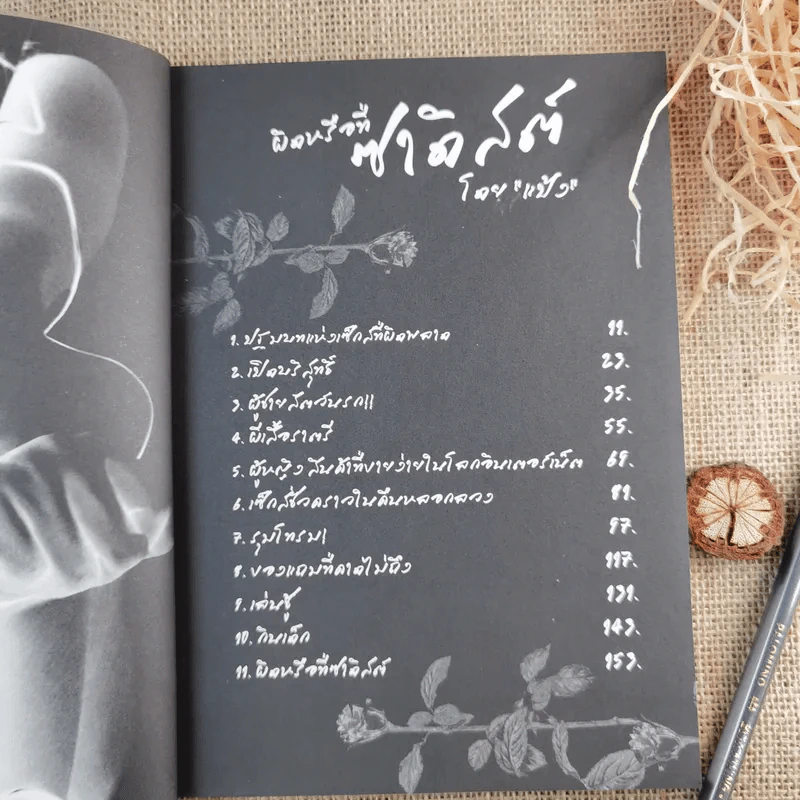 ผิดหรือที่
ซาดิสต์
โดย "แป้ง"
1. ปฐมบทแห่งเซ็กส์ที่ผิดพลาด 11.
2. เปิดบริสุทธิ์ 23.
3. ผู้ชายสัตว์นรก!! 35.
4. ผีเสื้อราตรี 55.
5. ผู้หญิง สินค้าที่ขายง่ายในโลกอินเตอร์เน็ต 69.
6. เซ็กส์ชั่วคราวในคืนหลอกลวง 81.
7. รุมโทรม! 97.
8. ของแถมที่คาดไม่ถึง 117.
9. เล่นชู้ 131.
10. กินเด็ก 143.
11. ผิดหรือที่ซาดิสต์ 153.